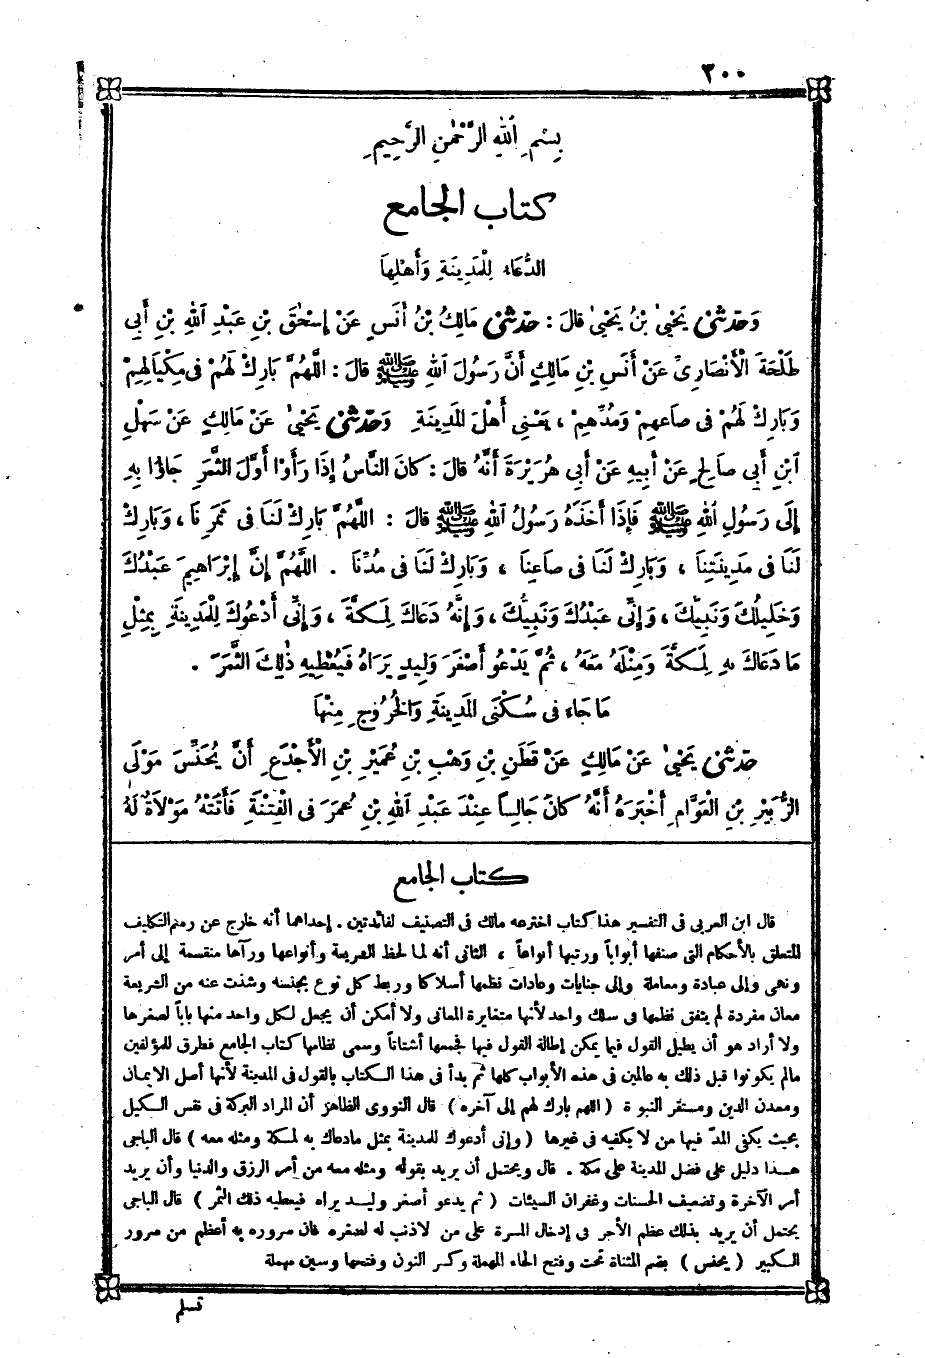 ٢٠٠
بِسْمِ اللهِ الرَّحْمٰنِ الرَّحِيمِ
كتاب الجامع
الدُّعَاءُ لِلْمَدِينَةِ وَأَهْلِهَا
وَحَدَّثَنِي يَحْيَىٰ بْنُ يَحْيَىٰ قَالَ : حَدَّثَنِي مَالِكُ بْنُ أَنَسٍ عَنْ إِسْحٰقَ بْنِ عَبْدِ اللهِ بْنِ أَبِي
طَلْحَةَ الْأَنْصَارِيِّ عَنْ أَنَسِ بْنِ مَالِكٍ أَنَّ رَسُولَ اللهِ ﷺ قَالَ : اللَّهُمَّ بَارِكْ لَهُمْ فِي مِكْيَالِهِمْ
وَبَارِكْ لَهُمْ فِي صَاعِهِمْ وَمُدِّهِمْ ، يَعْنِي أَهْلَ الْمَدِينَةِ وَحَدَّثَنِي يَحْيَىٰ عَنْ مَالِكٍ عَنْ سَهْلِ
ابْنِ أَبِي صَالِحٍ عَنْ أَبِيهِ عَنْ أَبِي هُرَيْرَةَ أَنَّهُ قَالَ : كَانَ النَّاسُ إِذَا رَأَوْا أَوَّلَ الثَّمَرِ جَاؤُا بِهِ
إِلَى رَسُولِ اللهِ ﷺ فَإِذَا أَخَذَهُ رَسُولُ اللهِ ﷺ قَالَ : اللَّهُمَّ بَارِكْ لَنَا فِي ثَمَرِنَا ، وَبَارِكْ
لَنَا فِي مَدِينَتِنَا ، وَبَارِكْ لَنَا فِي صَاعِنَا ، وَبَارِكْ لَنَا فِي مُدِّنَا . اللَّهُمَّ إِنَّ إِبْرَاهِيمَ عَبْدُكَ
وَخَلِيلُكَ وَنَبِيُّكَ ، وَإِنِّي عَبْدُكَ وَنَبِيُّكَ ، وَإِنَّهُ دَعَاكَ لِمَكَّةَ ، وَإِنِّي أَدْعُوكَ لِلْمَدِينَةِ بِمِثْلِ
مَا دَعَاكَ بِهِ لِمَكَّةَ وَمِثْلَهُ مَعَهُ ، ثُمَّ يَدْعُو أَصْغَرَ وَلِيدٍ يَرَاهُ فَيُعْطِيهِ ذٰلِكَ الثَّمَرَ .
مَا جَاءَ فِي سُكْنَى الْمَدِينَةِ وَالْخُرُوجِ مِنْهَا
حَدَّثَنِي يَحْيَىٰ عَنْ مَالِكٍ عَنْ قَطَنِ بْنِ وَهْبِ بْنِ عُمَيْرِ بْنِ الْأَجْدَعِ أَنَّ يُحَنِّسَ مَوْلَى
الزُّبَيْرِ بْنِ الْعَوَّامِ أَخْبَرَهُ أَنَّهُ كَانَ جَالِسًا عِنْدَ عَبْدِ اللهِ بْنِ عُمَرَ فِي الْفِتْنَةِ فَأَتَتْهُ مَوْلَاةٌ لَهُ
كتاب الجامع
قال ابن العربي في التفسير هذا كتاب اخترعه مالك في التصنيف لفائدتين . إحداهما أنه خارج عن رسم التكليف
المتعلق بالأحكام التي صنفها أبواباً ورتبها أنواعاً ، الثاني أنه لما لحظ الشريعة وأنواعها ورآها منقسمة إلى أمر
ونهي وإلى عبادة ومعاملة وإلى جنايات وعادات نظمها أسلاكا وربط كل نوع بجنسه وشذت عنه من الشريعة
معان مفردة لم يتفق نظمها في سلك واحد لأنها متغايرة المعاني ولا أمكن أن يجعل لكل واحد منها باباً لصغرها
ولا أراد هو أن يطيل القول فيما يمكن إطالة القول فيها فجمعها أشتاتاً وسمى نظامها كتاب الجامع فطرق للمؤلفين
مالم يكونوا قبل ذلك به عالمين في هذه الأبواب كلها ثم بدأ في هذا الكتاب بالقول في المدينة لأنها أصل الايمان
ومعدن الدين ومستقر النبوة ( اللهم بارك لهم إلى آخره ) قال النووي الظاهر أن المراد البركة في نفس الكيل
بحيث يكفي المدّ فيها من لا يكفيه في غيرها ( وإني أدعوك للمدينة بمثل مادعاك به لمكة ومثله معه ) قال الباجي
هذا دليل على فضل المدينة على مكة . قال ويحتمل أن يريد بقوله ومثله معه من أمر الرزق والدنيا وأن يريد
أمر الآخرة وتضعيف الحسنات وغفران السيئات ( ثم يدعو أصغر وليد يراه فيعطيه ذلك الثمر ) قال الباجي
يحتمل أن يريد بذلك عظم الأجر في إدخال المسرة على من لاذنب له لصغره فان سروره به أعظم من سرور
الكبير ( يحنس ) بضم المثناة تحت وفتح الحاء المهملة وكسر النون وفتحها وسين مهملة
تسلم